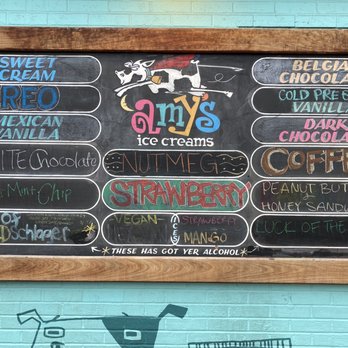 SWEET
CREAM
OREO
MEXICAN
VANILLA
WHITE Chocolate
Mint Chip
Schlager
amy's
ice creams
NUTMEG
STRAWBERRY
VEGAN-
ICES
STRAWBERRY
MANGO
*THESE HAS GOT YER ALCOHOL*
BELGIA
CHOCOLA
COLD PRE
VANILL
DARK
CHOCOLA
COFF
PEANUT BUT
HONEY SANDW
LUCK OF THE